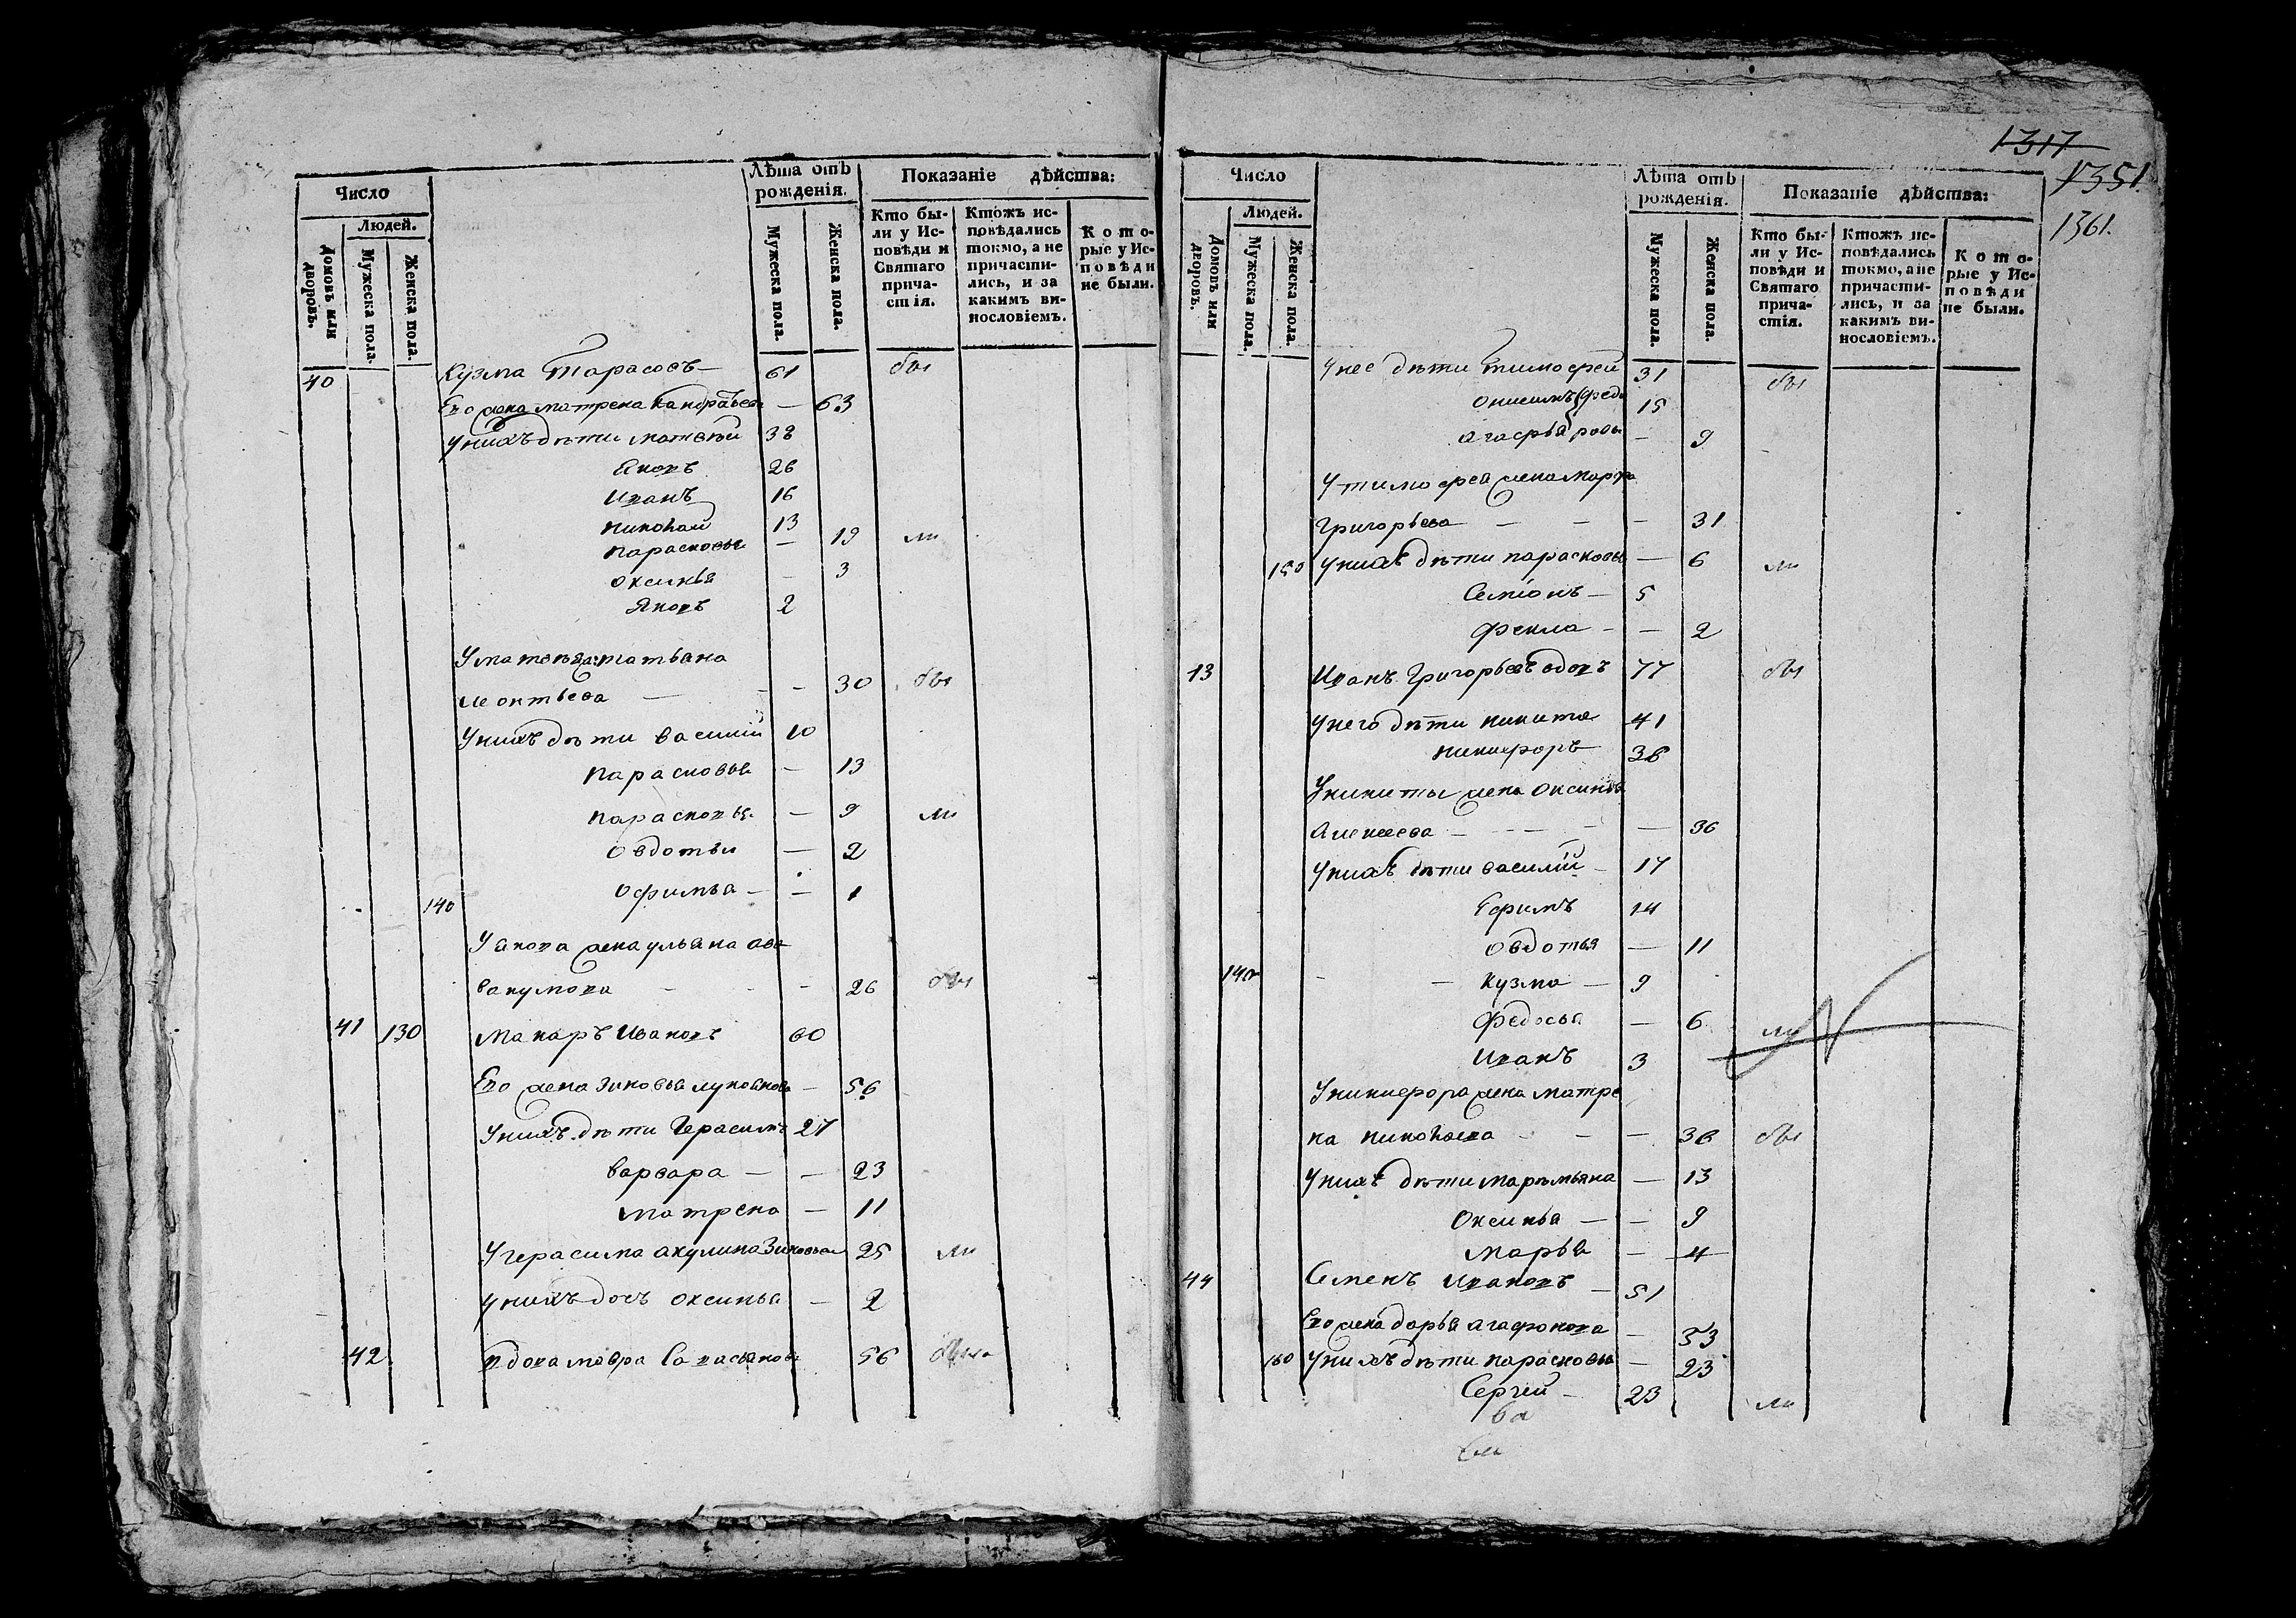 Число
Людей.
Домовъ или дворовъ.
Мужеска пола.
Женска пола.
Лѣта отъ рожденія.
Мужеска пола.
Женска пола.
Показаніе дѣйства:
Кто бы-
ли у Ис-
повѣди и
Святаго
прича-
стія.
Ктожъ ис-
повѣдались
токмо, а не
причасти-
лись, и за
какимъ ви-
нословіемъ.
Кото-
рые у Ис-
повѣди
не были.
40 Кузма Тарасовъ — 61 бы
Его жена матрена Кандратьева — 63
у нихъ дѣти матвѣй 38
Яковъ 26
Иванъ 16
николай 13
парасковья — 19 ли
оксинья — 3
Яковъ 2
У матвѣя ж: татьяна
леонтьева — — 30 бы
У нихъ дѣти василий 10
парасковья — 13
парасковья — 9 ли
овдотья — 2
140 офимья — — 1
У якова жена ульяна ава
вакумова — — 26 бы
41 130 макаръ Ивановъ 60
Его жена Зиновья лукоянова — 56
У нихъ дѣти Герасимъ 27
варвара — — 23
матрена — 11
У герасима акулина Зиновьев 25 ли
у нихъ дочь оксинья — 2
42 вдова мавра 56
1317
1351
1361.
Число
Людей.
Домовъ или дворовъ.
Мужеска пола.
Женска пола.
Лѣта отъ рожденія.
Мужеска пола.
Женска пола.
Показаніе дѣйства:
Кто бы-
ли у Ис-
повѣди и
Святаго
прича-
стія.
Ктожъ ис-
повѣдались
токмо, а не
причасти-
лись, и за
какимъ ви-
нословіемъ.
Кото-
рые у Ис-
повѣди
не были.
У нее дѣти тимофей 31 бы
онисимъ федо 15
агафья ровы — 9
У тимофея жена марфа
григорьева — — — 31
150 у нихъ дѣти парасковья — 6 ли
Семіонъ — 5
фекла — — 2
13 Иванъ Григорьевъ вдовъ 77 бы
у него дѣти никита 41
никифоръ 38
У никиты жена оксинья
Алексеева — — — 36
У нихъ дѣти василій — 17
Ефимъ 14
овдотья — 11
140 — Кузма — 9
федосья — 6 ли
Иванъ 3
У никифора жена матре
на николаева — — 36 бы
У нихъ дѣти маремьяна — 13
Оксинья — — 9
марья — 4
44 Семенъ Ивановъ — 51
Его жена дарья агафонова — 53
160 У нихъ дѣти парасковья — 23
Сергей — 23 ли
ва